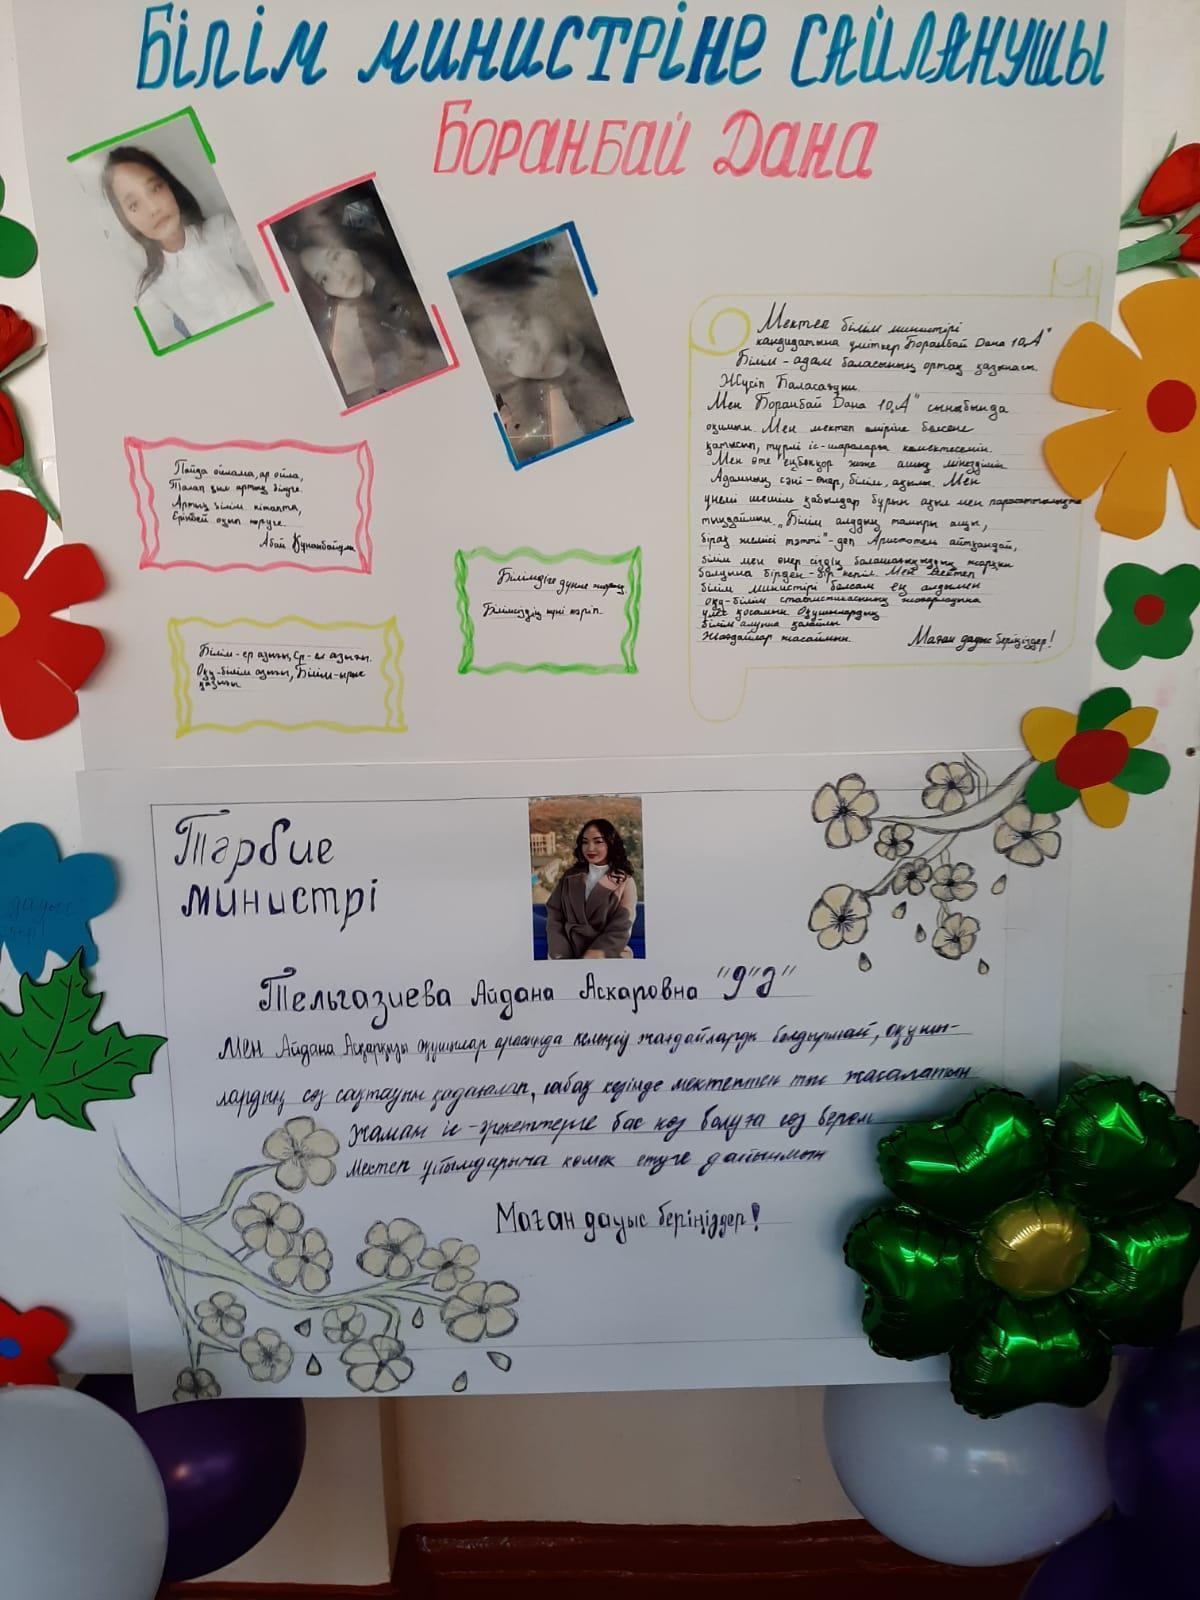 Білім министріне сайланушы
Боранбай Дана
Мектеп білім министрі
кандидатына үміткер Боранбай Дана 10"А"
Білім - адам баласының ортақ қазынасы.
Жүсіп Баласағұни.
Мен Боранбай Дана 10"А" сыныбында
оқимын. Мен мектеп өміріне белсене
қатысып, түрлі іс-шараларға көмектесемін.
Мен өте еңбекқор және ашық мінездімін
Адамның сәні - өнер, білім, ақылы. Мен
үнемі шешім қабылдар бұрын ақыл мен парасаттылықты
тыңдаймын. "Білім алудың тамыры ащы,
бірақ жемісі тәтті" - деп Аристотель айтқандай,
білім мен өнер сіздің болашағыңыздың жарқын
болуына бірден-бір кепіл. Мен мектеп
білім министрі болсам ең алдымен
оқу-білім статистикасының жоғарлауына
үлес қосамын. Оқушылардың
білім алуына қолайлы
жағдайлар жасаймын.
Маған дауыс беріңіздер!
Пайда ойлама, ар ойла,
Талап қыл артық білуге.
Артық білім кітапта,
Ерінбей оқып көруге.
Абай Құнанбайұлы
Білімдіге дүние жарық,
Білімсіздің күні кәріп.
Білім - ер азығы, Ер - ел азығы.
Оқу - білім азығы, Білім - ырыс
қазығы
Тәрбие
министрі
Тельгазиева Айдана Аскаровна "9"Ә"
Мен Айдана Асқарқызы оқушылар арасында келеңсіз жағдайларды болдырмай, оқушы-
лардың сөз сақтауын қадағалап, сабақ кезінде мектептен тыс жасалатын
жаман іс-әрекеттерге бас көз болуға сөз берем
Мектеп ұйымдарына көмек етуге дайынмын
Маған дауыс беріңіздер!
дауыс